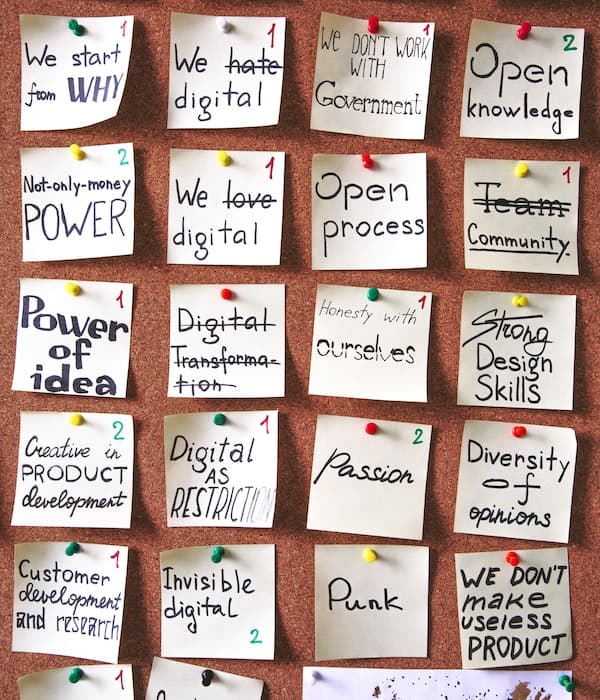 1
We start
from WHY
1
We hate
digital
1
We DON'T WORK
WITH
Government
2
Open
knowledge
2
Not-only-money
POWER
1
We love
digital
Open
process
1
Team
Community
1
Power
of
idea
Digital
Transforma-
tion
1
Honesty with
ourselves
Strong
Design
Skills
2
Creative in
PRODUCT
development
1
Digital
AS
RESTRICTION
2
Passion
Diversity
of
opinions
1
Customer
development
and research
Invisible
digital
2
Punk
WE DON'T
make
useless
PRODUCT
1